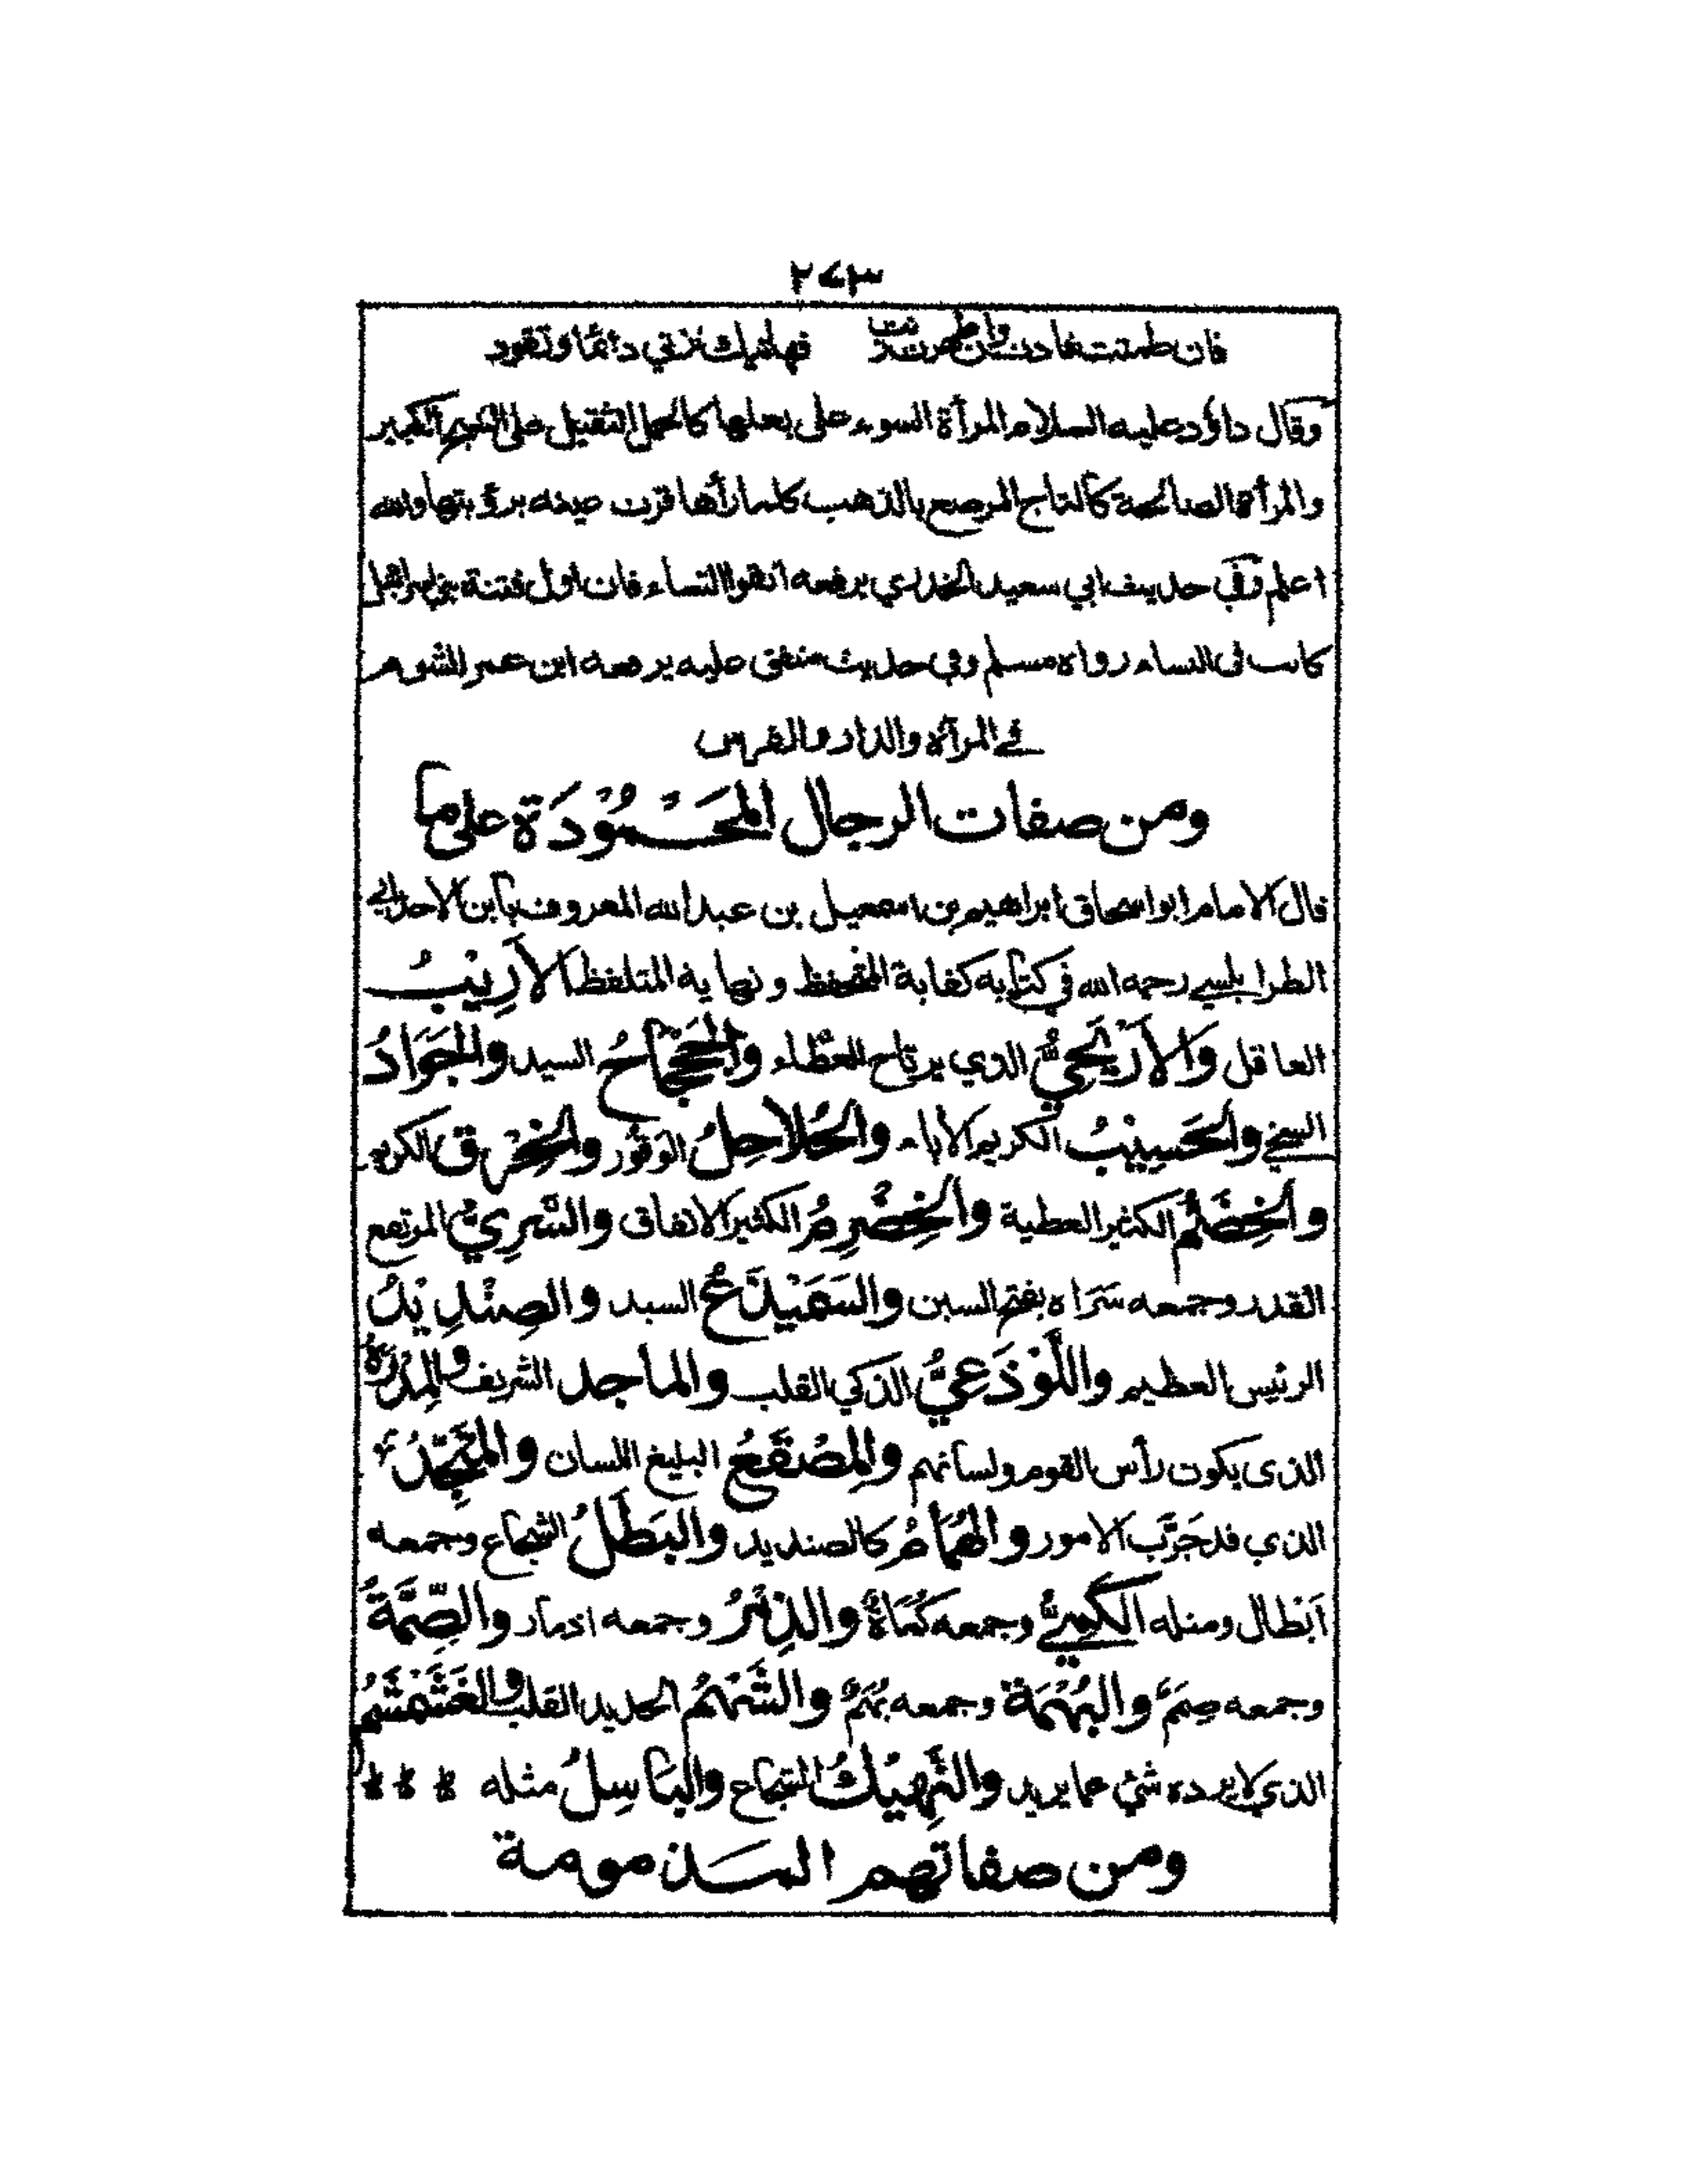 ٢٧٣
فان طمثت قادت وان طهرت زنت فهاتيك تزني دائما وتقود
وقال داؤد عليه السلام المرأة السوء على بعلها كالحمل الثقيل على الشيخ الكبير
والمرأة الصالحة كالتاج المرصع بالذهب كلما رأها قرت عينه برؤيتها والله
اعلم وفي حديث ابي سعيد الخدري يرفعه اتقوا النساء فان اول فتنة بني اسرائيل
كانت في النساء رواه مسلم وفي حديث متفق عليه يرفعه ابن عمر الشوم
في المرأة والدار والفرس
ومن صفات الرجال المَحْمُوْدَة على ما
قال الامام ابو اسحاق ابراهيم بن اسمعيل بن عبد الله المعروف بابن الاجدابي
الطرابلسي رحمه الله في كتابه كفاية المتحفظ ونهاية المتلفظ الأَرِيْبُ
العاقل وَالأَرْيَحِيُّ الذي يرتاح للعطاء والجَحْجَاحُ السيد والجَوَادُ
السخي والحَسِيْبُ الكريم الاباء والحُلاحِلُ الوَقُور والخِرْق الكريم
والخِضَمُّ الكثير العطية والخِضْرِمُ الكثير الانفاق والسَّرِيُّ المرتفع
القدر وجمعه سَرَاه بفتح السين والسَمَيْدَعُ السيد والصِنْدِيْدُ
الرئيس العظيم واللَّوْذَعِيُّ الذكي القلب والماجد الشريف والمِدْرَهُ
الذى يكون رأس القوم ولسانهم والمِصْقَعُ البليغ اللسان والمُنَجَّذُ
الذي قد جَرَّب الامور والهُمَامُ كالصنديد والبَطَلُ الشجاع وجمعه
اَبْطال ومثله الكَمِيُّ وجمعه كُمَاةٌ والذِمْرُ وجمعه اذمار والصِّمَّةُ
وجمعه صِمَمٌ والبُهْمَة وجمعه بُهَمٌ والشَّهْمُ الحديد القلب والغَشَمْشَمُ
الذي لا يرده شئ عما يريد والنَّهِيْكُ الشجاع والبَاسِلُ مثله
ومن صفاتهم المذمومة